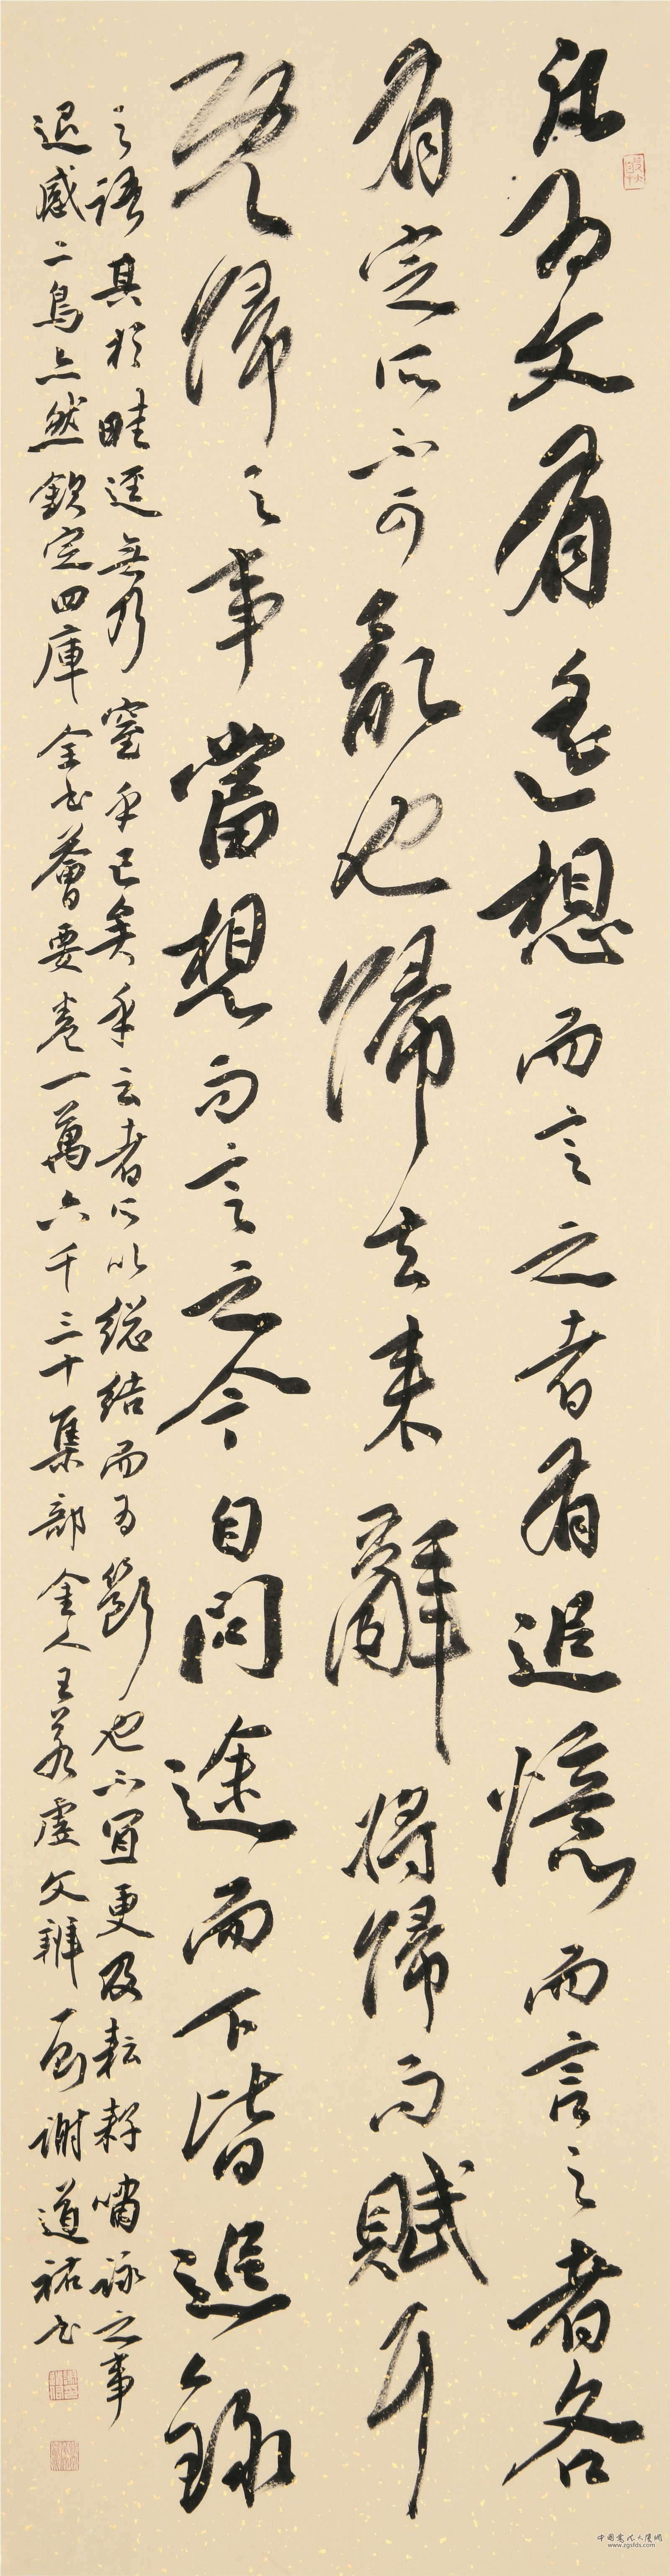 凡為文有遙想而言之者有追憶而言之者各
有定所不可亂也歸去來辭將歸而賦耳
既歸之事當想而言之今自問途而下皆追錄
之語其於畦逕無乃窒乎已矣乎云者所以總結而為斷也不宜更及耘耔嘯詠之事
退感二鳥亦然欽定四庫全書薈要卷一萬六千三十集部金人王若虛文辨一則謝道祐書
中國書法大賽網
www.zgsfds.com